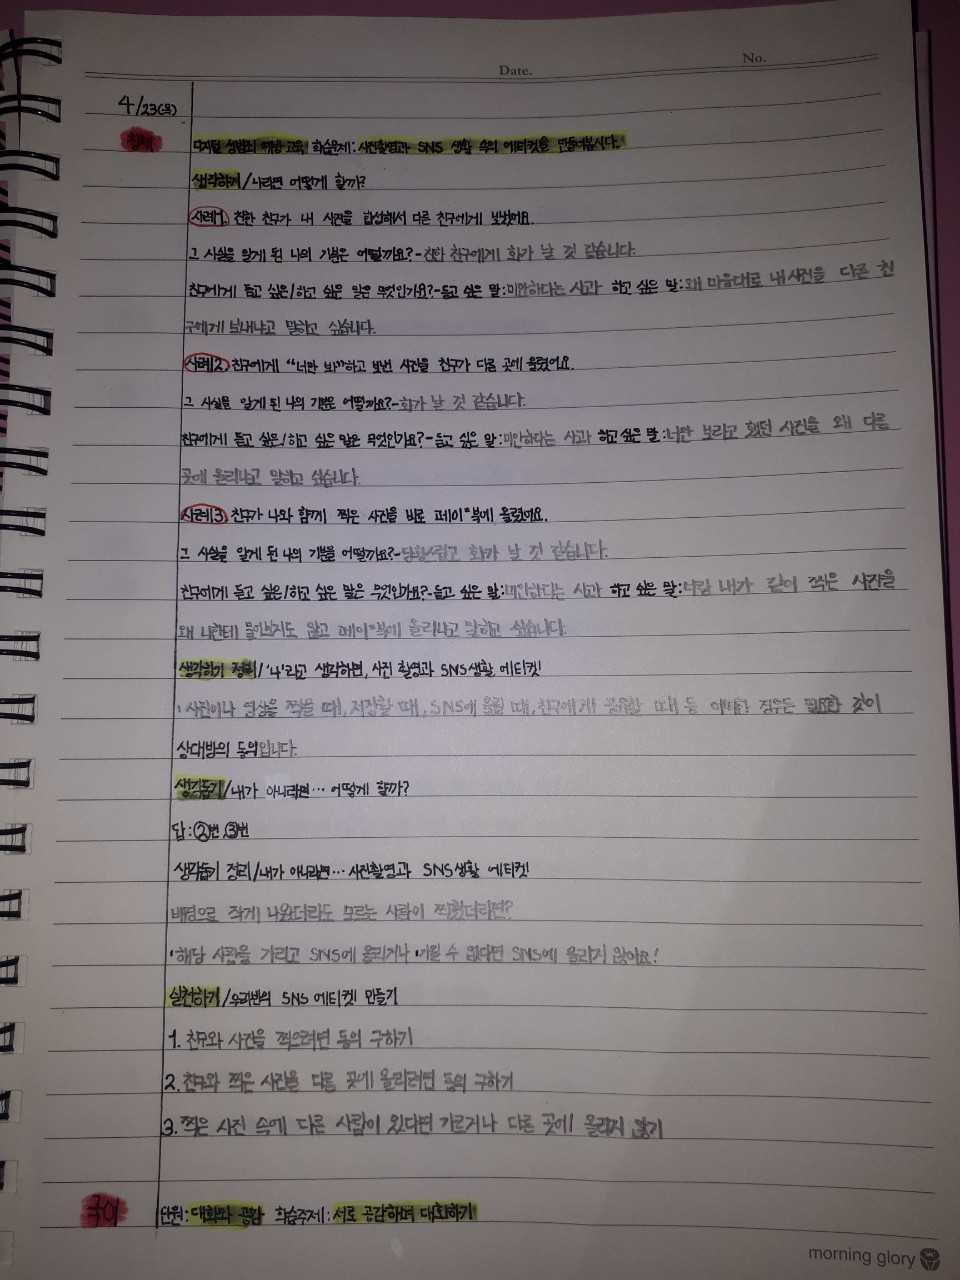 Date. No.
4/23(목)
디지털 성범죄 예방 교육 학습문제: 사진촬영과 SNS 생활 속의 에티켓을 만들어봅시다.
생각하기/나라면 어떻게 할까?
사례1. 친한 친구가 내 사진을 합성해서 다른 친구에게 보냈어요.
그 사실을 알게 된 나의 기분은 어떨까요?-친한 친구에게 화가 날 것 같습니다.
친구에게 듣고 싶은/하고 싶은 말은 무엇인가요?-듣고 싶은 말:미안하다는 사과 하고 싶은 말:왜 마음대로 내 사진을 다른 친
구에게 보내냐고 말하고 싶습니다.
사례2. 친구에게 “너만 봐”하고 보낸 사진을 친구가 다른 곳에 올렸어요.
그 사실을 알게 된 나의 기분은 어떨까요?-화가 날 것 같습니다.
친구에게 듣고 싶은/하고 싶은 말은 무엇인가요?-듣고 싶은 말:미안하다는 사과 하고 싶은 말:너만 보라고 했던 사진을 왜 다른
곳에 올리냐고 말하고 싶습니다.
사례3. 친구가 나와 함께 찍은 사진을 바로 페이*북에 올렸어요.
그 사실을 알게 된 나의 기분을 어떨까요?-당황스럽고 화가 날 것 같습니다.
친구에게 듣고 싶은/하고 싶은 말은 무엇인가요?-듣고 싶은 말:미안하다는 사과 하고 싶은 말:너랑 내가 같이 찍은 사진을
왜 나한테 물어보지도 않고 페이*북에 올리냐고 말하고 싶습니다.
생각하기 정리/'나'라고 생각하면, 사진 촬영과 SNS생활 에티켓!
사진이나 영상을 찍을 때, 저장할 때, SNS에 올릴 때, 친구에게 공유할 때 등 어떠한 경우든 필요한 것이
상대방의 동의입니다.
생각돕기/내가 아니라면… 어떻게 할까?
답:②번,③번
생각돕기 정리/내가 아니라면… 사진촬영과 SNS생활 에티켓!
배경으로 작게 나왔더라도 모르는 사람이 찍혔더라면?
해당 사람을 가리고 SNS에 올리거나 가릴 수 없다면 SNS에 올리지 않아요!
실천하기/우리반의 SNS 에티켓! 만들기
1. 친구와 사진을 찍으려면 동의 구하기
2. 친구와 찍은 사진을 다른 곳에 올리려면 동의 구하기
3. 찍은 사진 속에 다른 사람이 있다면 가르거나 다른 곳에 올리지 않기
국어 단원: 대화와 공감 학습주제: 서로 공감하며 대화하기
morning glory